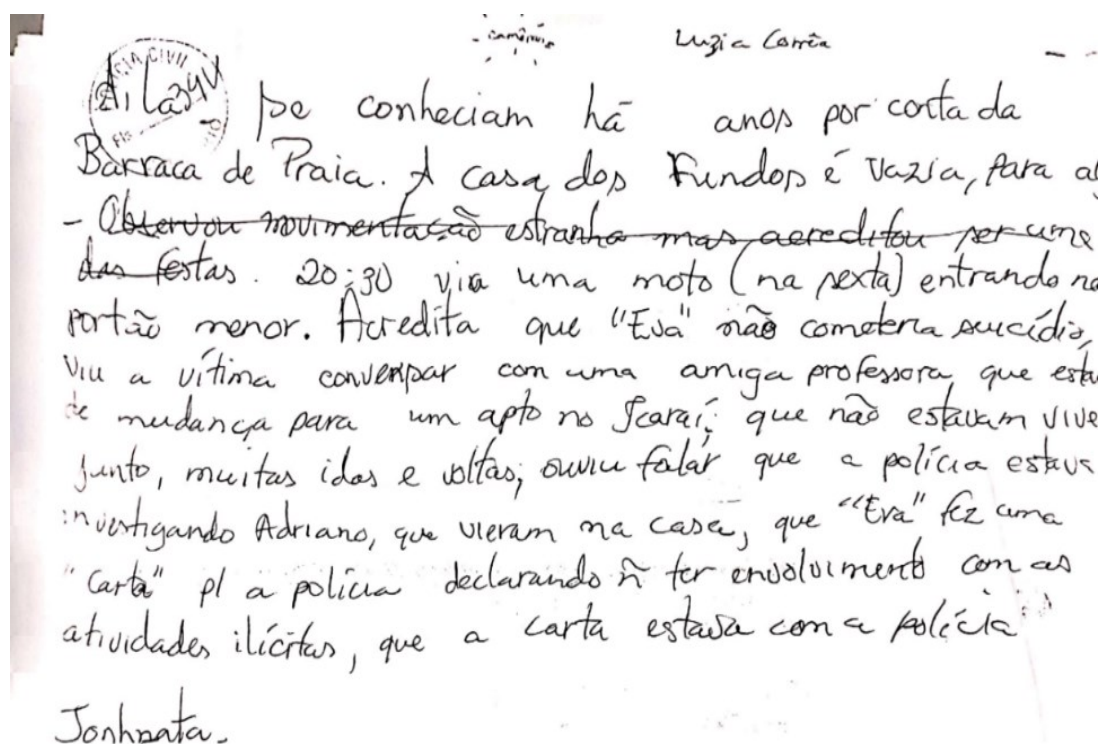 Luzia Corrêa
se conheciam há anos por conta da
Barraca de Praia. A casa dos Fundos é Vazia, para
- Observou movimentação estranha mas acreditou ser uma
das festas. 20:30 viu uma moto (na sexta) entrando no
portão menor. Acredita que "Eva" não cometeria suicídio,
Viu a vítima conversar com uma amiga professora, que
de mudança para um apto no Icaraí; que não estavam
junto, muitas idas e voltas; ouviu falar que a polícia estava
investigando Adriano, que vieram na casa, que "Eva" fez uma
"carta" p/ a polícia declarando ñ ter envolvimento com as
atividades ilícitas, que a carta estava com a polícia
Jonhnata.